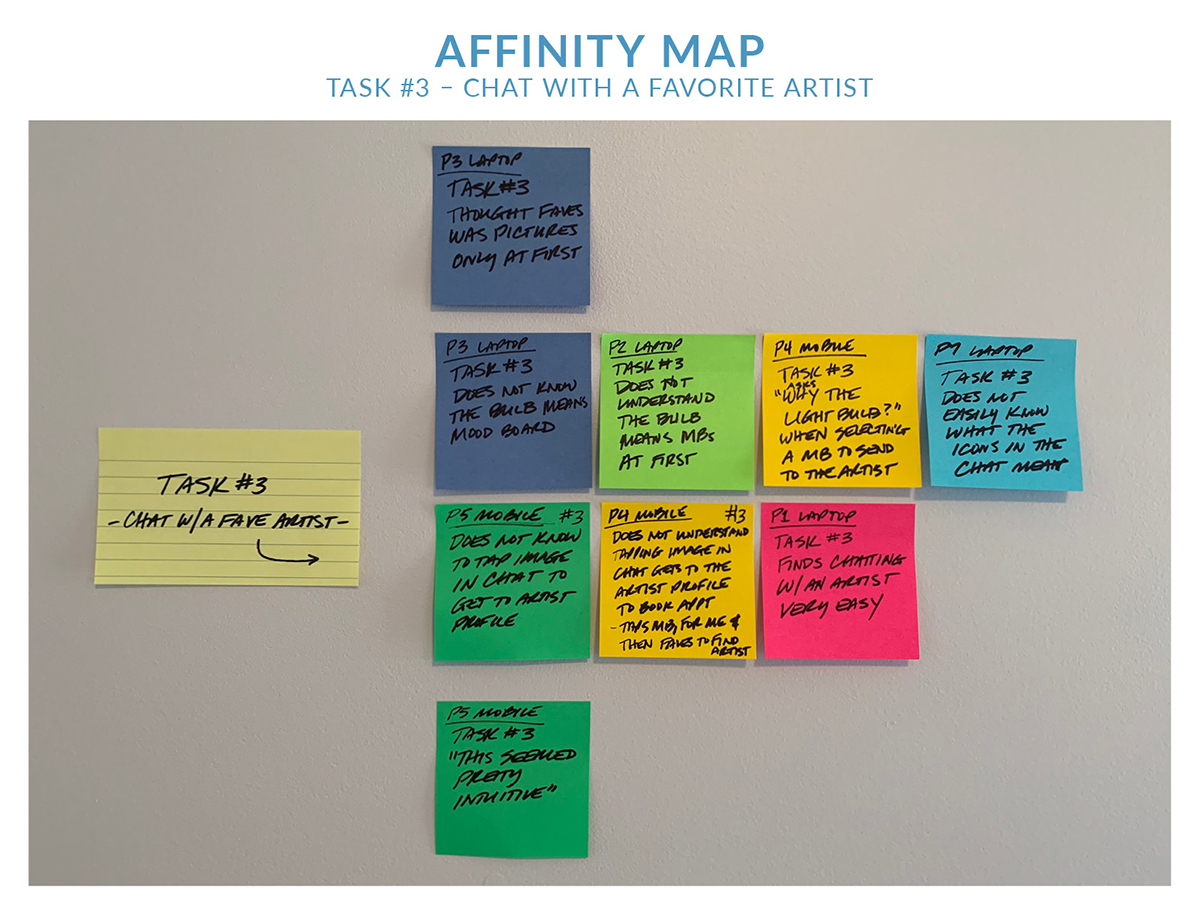 AFFINITY MAP
TASK #3 – CHAT WITH A FAVORITE ARTIST
P3 LAPTOP
TASK #3
THOUGHT FAVES
WAS PICTURES
ONLY AT FIRST
P3 LAPTOP
TASK #3
DOES NOT KNOW
THE BULB MEANS
MOOD BOARD
P2 LAPTOP
TASK #3
DOES NOT
UNDERSTAND
THE BULB
MEANS MBs
AT FIRST
P4 MOBILE
TASK #3
ASKS
"WHY THE
LIGHT BULB?"
WHEN SELECTING
A MB TO SEND
TO THE ARTIST
LAPTOP
TASK #3
DOES NOT
EASILY KNOW
WHAT THE
ICONS IN THE
CHAT MEAN
TASK #3
- CHAT W/A FAVE ARTIST -
P5 MOBILE #3
DOES NOT KNOW
TO TAP IMAGE
IN CHAT TO
GET TO ARTIST
PROFILE
P4 MOBILE #3
DOES NOT UNDERSTAND
TAPPING IMAGE IN
CHAT GETS TO THE
ARTIST PROFILE
TO BOOK APPT
- TAPS MB FOR ME &
THEN FAVES TO FIND
ARTIST
P1 LAPTOP
TASK #3
FINDS CHATTING
W/AN ARTIST
VERY EASY
P5 MOBILE
TASK #3
"THIS SEEMED
PRETTY
INTUITIVE"